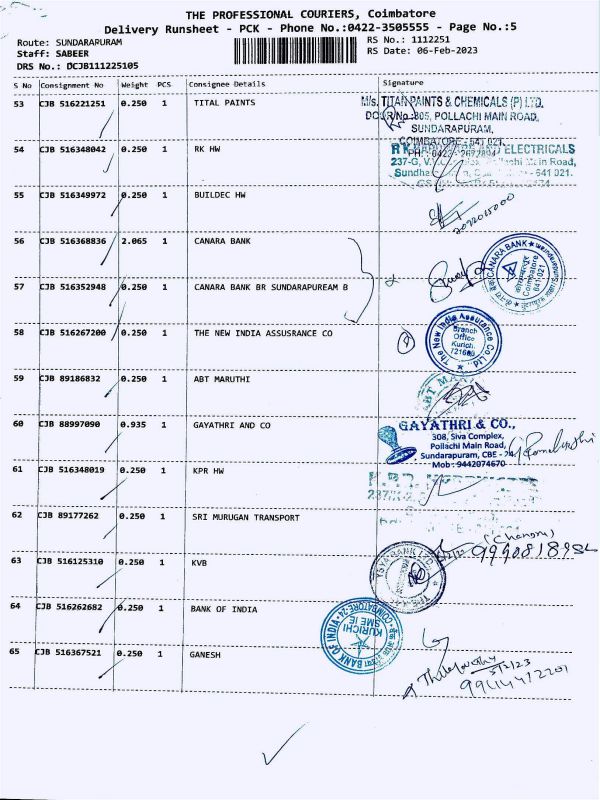 THE PROFESSIONAL COURIERS, Coimbatore
Delivery Runsheet - PCK - Phone No.:0422-3505555 - Page No.:5
Route: SUNDARARUPAM RS No.: 1112251
Staff: SABEER RS Date: 06-Feb-2023
DRS No.: DCJB111225105
S No Consignment No Weight PCS Consignee Details Signature
53 CJB 516221251 0.250 1 TITAL PAINTS
M/s. TITAN PAINTS & CHEMICALS (P) LTD.
DOOR No: 805, POLLACHI MAIN ROAD,
SUNDARAPURAM,
COIMBATORE - 641 021.
54 CJB 516348042 0.250 1 RK HW
ELECTRICALS
237-G, Main Road,
641 021.
55 CJB 516349972 0.250 1 BUILDEC HW
56 CJB 516368836 2.065 1 CANARA BANK
CANARA BANK
Coimbatore
641 021
57 CJB 516352948 0.250 1 CANARA BANK BR SUNDARAPUREAM B
58 CJB 516267200 0.250 1 THE NEW INDIA ASSUSRANCE CO
The New India Assurance Co Ltd
Branch
Office
Kurichi
721600
59 CJB 89186832 0.250 1 ABT MARUTHI
60 CJB 88997090 0.935 1 GAYATHRI AND CO
GAYATHRI & CO.,
308, Siva Complex,
Pollachi Main Road,
Sundarapuram, CBE - 24
Mob: 9442074670
61 CJB 516348019 0.250 1 KPR HW
62 CJB 89177262 0.250 1 SRI MURUGAN TRANSPORT
63 CJB 516125310 0.250 1 KVB
VYSYA BANK LTD.
64 CJB 516262682 0.250 1 BANK OF INDIA
BANK OF INDIA
COIMBATORE-24
KURICHI
SME IE
65 CJB 516367521 0.250 1 GANESH